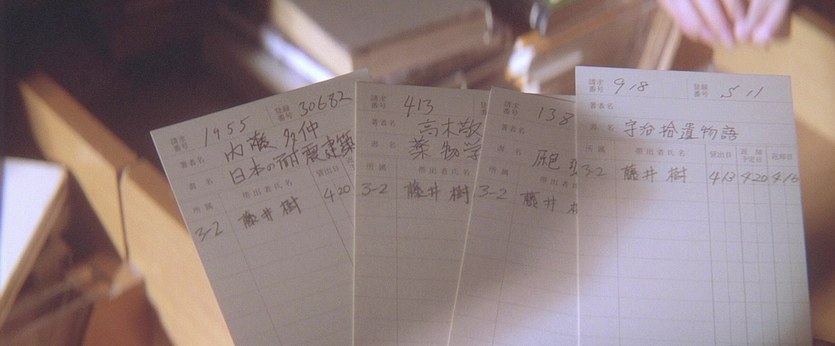 請求番号 1955 登録番号 30682
著者名 内藤多仲
書名 日本の耐震建築
所属 帯出者氏名 貸出日
3-2 藤井樹 4.20
請求番号 413
著者名 高木敬
書名 薬物学
所属 帯出者氏名
3-2 藤井樹
請求番号 138
著者名
書名
所属 帯出者氏
3-2 藤井
請求番号 918 登録番号 511
著者名
書名 宇治拾遺物語
所属 帯出者氏名 貸出日 返却予定日 返却日
3-2 藤井樹 4.13 4.20 4.16